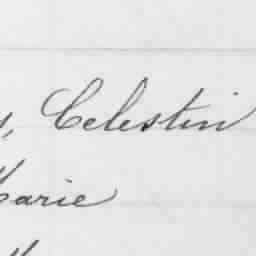 , Celestin
Marie